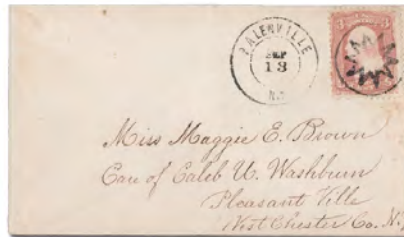 PALENVILLE
SEP
13
N.Y.
3 3
Miss Maggie E. Brown
Care of Caleb U. Washburn
Pleasant Ville
West Chester Co. N.Y